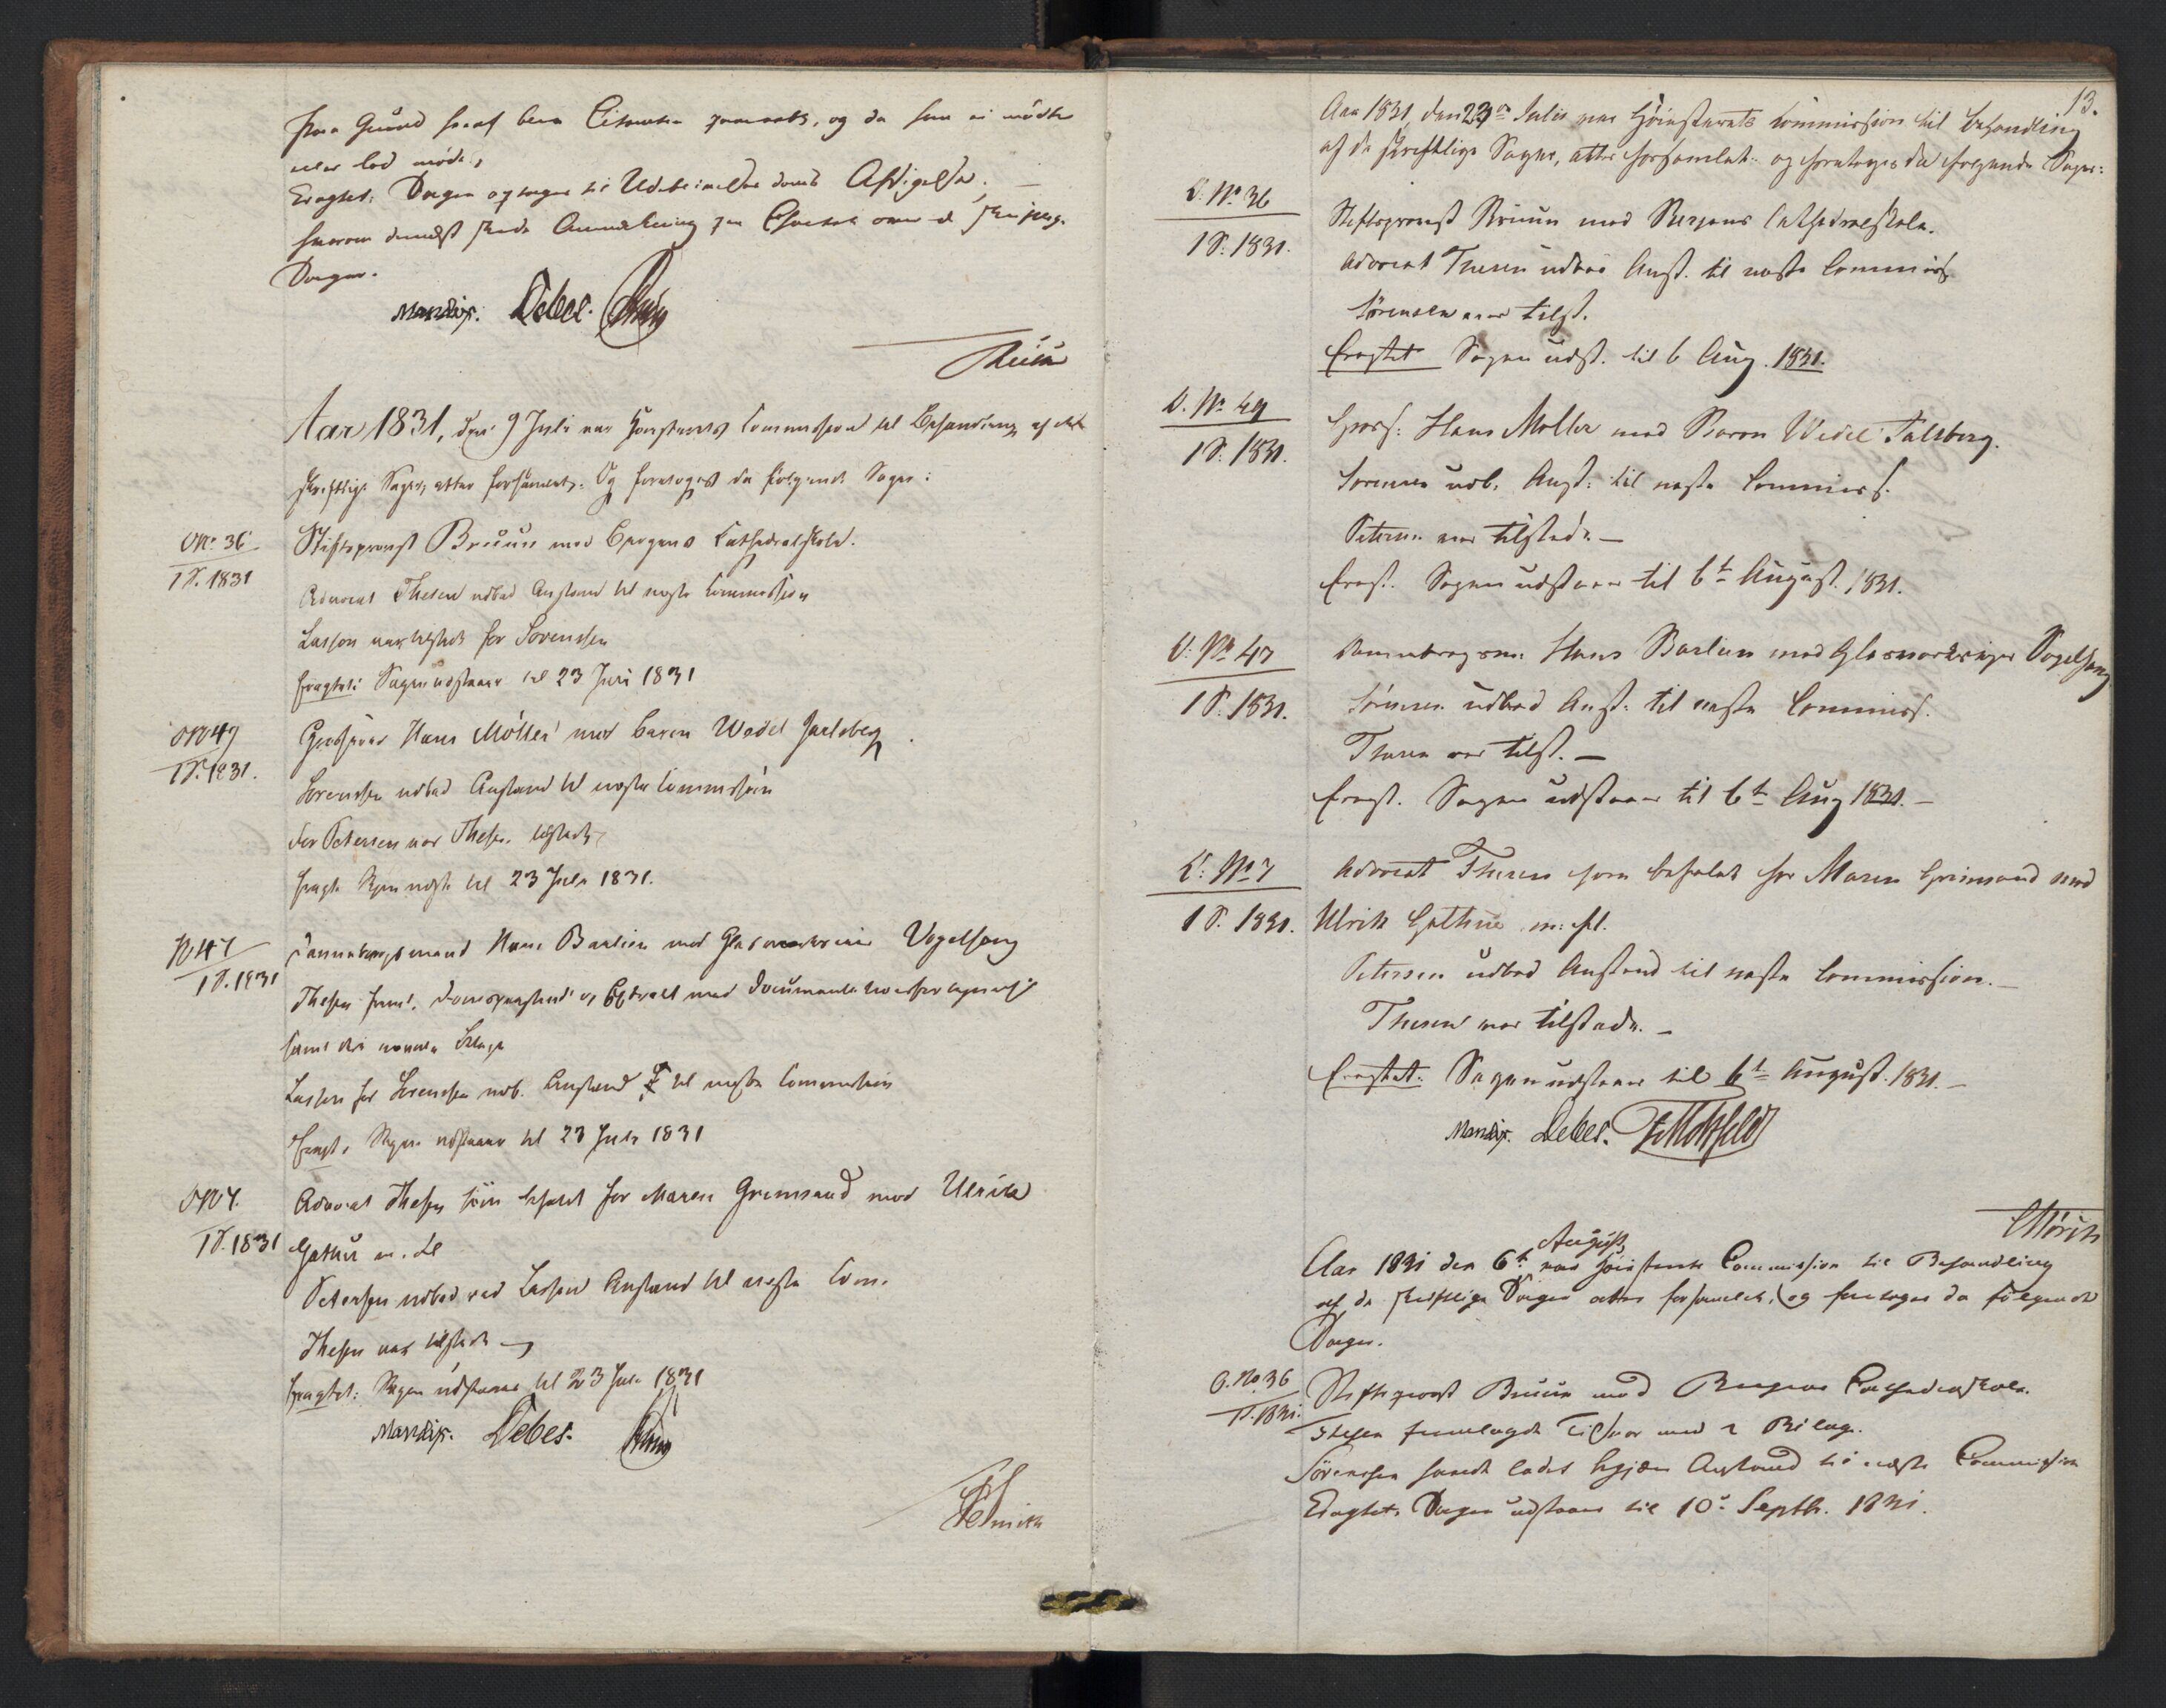 paa Grund heraf bera Citanten paaraabt, og da han ei mødte
eller lod møde,
Eragtet: Sagen optages til Udeblivelses Doms Afsigelse. —
hvorom dernæst skede Anmærkning paa Charten over de skriftlige
Sager.
Mandix. Debes.
Aar 1831, den 9 Juli var Høiesterets Commission til Behandling af de
skriftlige Sager, atter forsamlet. Og foretoges da følgende Sager:
O No. 36
1 S. 1831
Stiftsprovst Bruun mod Bergens Cathedralskole.
Advocat Thesen udbad Anstand til næste Commission
Lasson var tilstede for Sørenssen
Eragtet: Sagen udstaaer til 23 Juli 1831
O No 49
1 S. 1831.
Grosserer Hans Møller mod Baron Wedel Jarlsberg.
Sørenssen udbad Anstand til næste Commission
For Petersen var Thesen tilstede
Eragt. Sagen udst. til 23 Juli 1831.
No 47
1 S. 1831
Dannebrogsmand Hans Barlien mod Glasmærkeier Vogelsang
Thesen freml. Domspaastand og Extract med Documenter
samt de Bilage
Lasson for Sørenssen udb. Anstand til næste Commission
Eragt. Sagen udstaaer til 23 Juli 1831
O No 7.
1 S. 1831
Advocat Thesen som befalet for Maren Grimsand mod Ulrick
Gathus m. fl
Petersen udbad ved Lasson Anstand til næste Com.
Thesen var tilstede —
Eragtet: Sagen udstaaer til 23 Juli 1831
Mandix. Debes.
13.
Aar 1831, den 23de Julii var Høiesterets Commission til Behandling
af de skriftlige Sager, atter forsamlet. og foretoges da følgende Sager:
O. No. 36
1 S. 1831.
Stiftsprovst Bruun mod Bergens Cathedralskole.
Advocat Thesen udbad Anst. til næste Commiss.
Sørensen var tilst.
Eragtet Sagen udst. til 6 Aug. 1831.
O. No. 49
1 S. 1831.
Gross: Hans Møller mod Baron Wedel Jalsberg.
Sørensen udb. Anst. til næste Commiss.
Petersen var tilstede. —
Eragt. Sagen udstaaer til 6te August. 1831.
O. No 47
1 S. 1831.
Dannebrogsm. Hans Barlien mod Glasmærkeier Vogelsang
Sørensen udbad Anst. til næste Commiss.
Thesen var tilst. —
Eragt. Sagen udstaaer til 6te Aug 1831. —
O. No 7
1 S. 1831.
Advocat Thesen som befalet for Maren Grimsand mod
Ulrik Gathus m: fl.
Petersen udbad Anstand til næste Commission. —
Thesen var tilstede. —
Eragtet. Sagen udstaaer til 6te August. 1831. —
Mandix. Debes. Motzfeldt
August
Aar 1831 den 6te var Høiesterets Commission til Behandling
af de skriftlige Sager atter forsamlet, og foretoges da følgende
Sager.
O. No. 36
1 S. 1831.
Stiftsprovst Bruun mod Bergens Cathedralskole.
Thesen fremlagde Tilsvar med 2 Bilage.
Sørenssen havde ladet begjære Anstand til næste Commission
Eragtet: Sagen udstaaer til 10de Septbr. 1831.